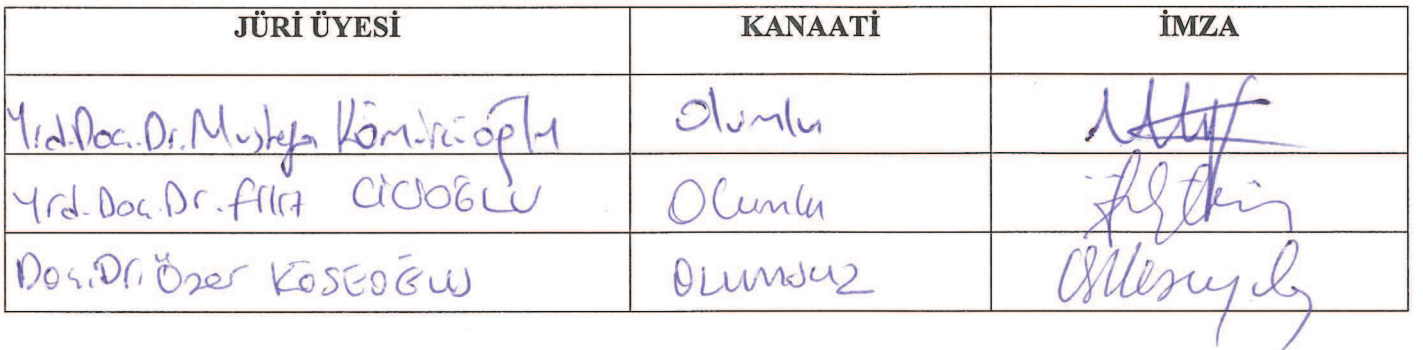 JÜRİ ÜYESİ KANAATİ İMZA
Yrd.Doç.Dr. Mustafa Kömürcüoğlu Olumlu
Yrd.Doç.Dr. Filiz CİCİOĞLU Olumlu
Doç.Dr. Özer KÖSEOĞLU OLUMSUZ